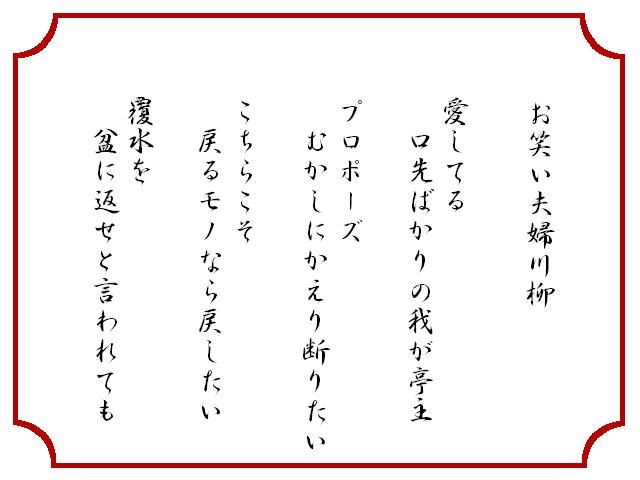 お笑い夫婦川柳
愛してる
口先ばかりの我が亭主
プロポーズ
むかしにかえり断りたい
こちらこそ
戻るモノなら戻したい
覆水を
盆に返せと言われても